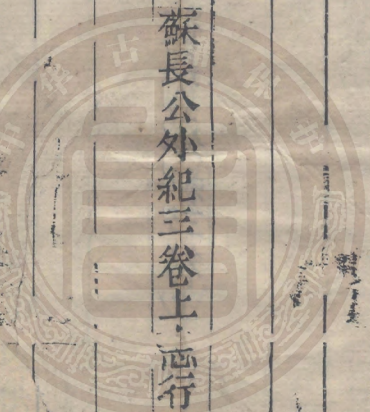 蘇長公外紀三卷上·志行